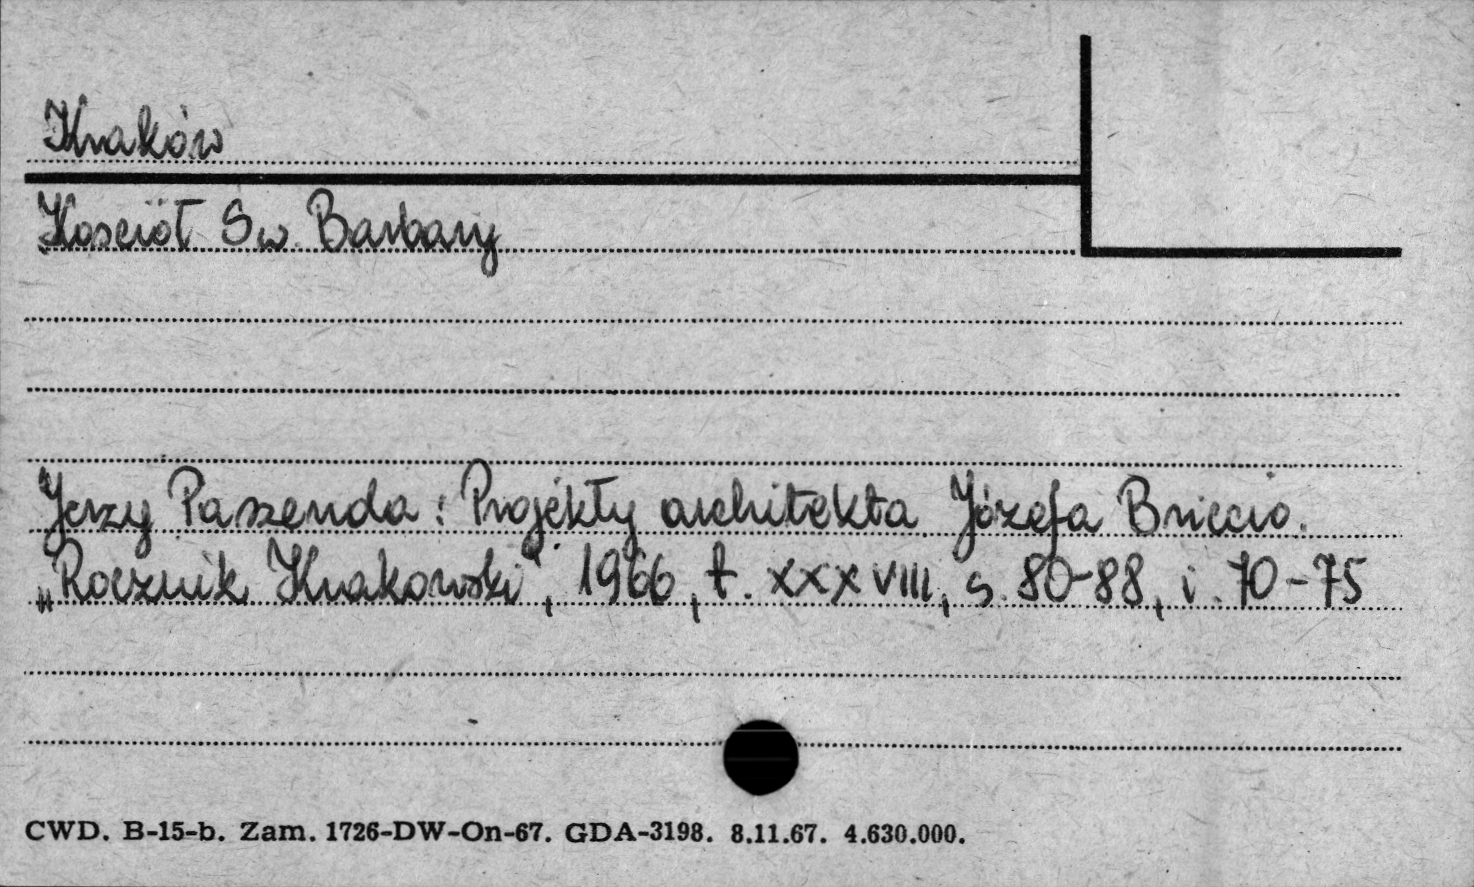 Kraków
Kościół Św. Barbary
Jerzy Paszenda: Projekty architekta Józefa Briccio.
„Rocznik Krakowski", 1966, t. XXXVIII, s. 80-88, i. 70-75
CWD. B-15-b. Zam. 1726-DW-On-67. GDA-3198. 8.11.67. 4.630.000.